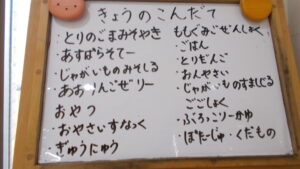 きょうのこんだて
・とりのごまみそやき
・あすぱらそてー
・じゃがいものみそしる
・ りんごゼリー
おやつ
・おやさいすなっく
・ぎゅうにゅう
ももぐみごぜんしょく
・ごはん
・とりだんご
・おんやさい
・じゃがいものすましじる
ごごしょく
・ぶろっこりーかゆ
・ぽたーじゅ・くだもの